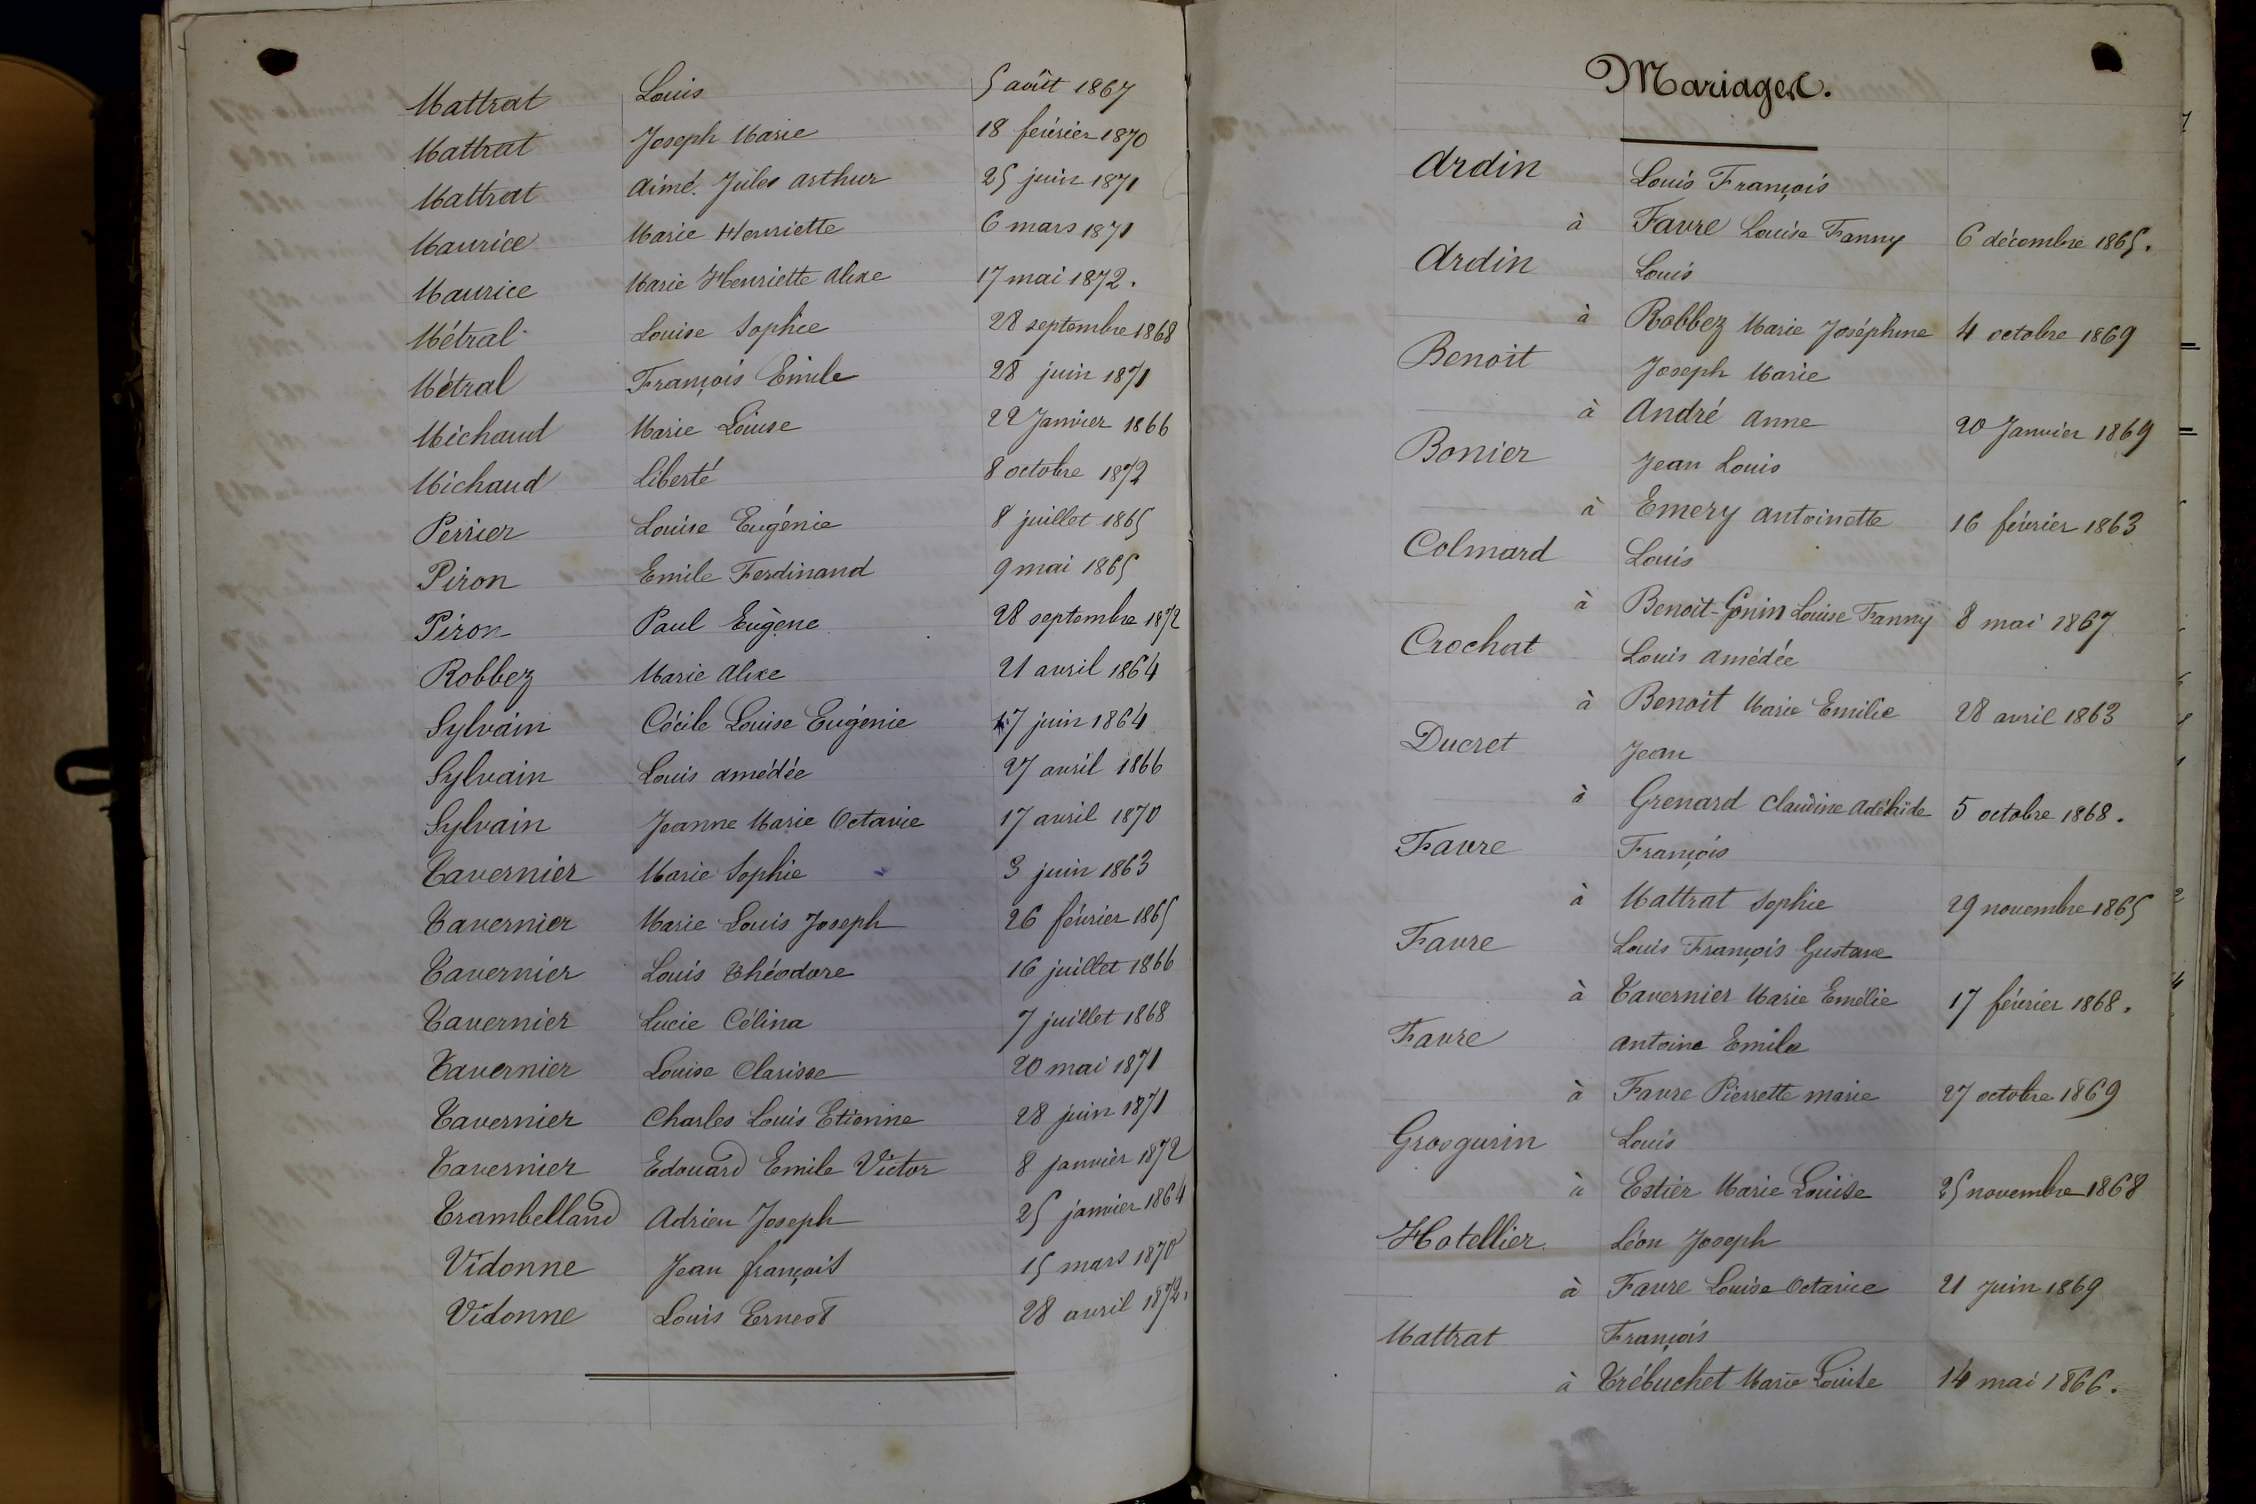 Mattrat Louis 5 août 1867
Mattrat Joseph Marie 18 février 1870
Mattrat Aimé Jules Arthur 25 juin 1871
Maurice Marie Henriette 6 mars 1871
Maurice Marie Henriette Alixe 17 mai 1872.
Métral Louise Sophie 28 septembre 1868
Métral François Emile 28 juin 1871
Michaud Marie Louise 22 Janvier 1866
Michaud Liberté 8 octobre 1872
Perrier Louise Eugénie 8 juillet 1865
Piron Emile Ferdinand 9 mai 1865
Piron Paul Eugène 28 septembre 1872
Robbez Marie Alixe 21 avril 1864
Sylvain Cécile Louise Eugénie 17 juin 1864
Sylvain Louis Amédée 27 avril 1866
Sylvain Jeanne Marie Octavie 17 avril 1870
Tavernier Marie Sophie 3 juin 1863
Tavernier Marie Louis Joseph 26 février 1865
Tavernier Louis Théodore 16 juillet 1866
Tavernier Lucie Célina 7 juillet 1868
Tavernier Louise Clarisse 20 mai 1871
Tavernier Charles Louis Etienne 28 juin 1871
Tavernier Edouard Emile Victor 8 janvier 1872
Trambelland Adrien Joseph 25 janvier 1864
Vidonne Jean françois 15 mars 1870
Vidonne Louis Ernest 28 avril 1872.
Mariages.
Ardin Louis François
à Favre Louise Fanny 6 décembre 1865.
Ardin Louis
à Robbez Marie Joséphine 4 octobre 1869
Benoit Joseph Marie
à André Anne 20 Janvier 1869
Bonier Jean Louis
à Emery Antoinette 16 février 1863
Colmard Louis
à Benoit-Gonin Louise Fanny 8 mai 1867
Crochat Louis Amédée
à Benoit Marie Emilie 28 avril 1863
Ducret Jean
à Grenard Claudine Adélaïde 5 octobre 1868.
Favre François
à Mattrat Sophie 29 novembre 1865
Favre Louis François Gustave
à Tavernier Marie Emélie 17 février 1868.
Favre Antoine Emile
à Favre Pierrette marie 27 octobre 1869
Grosgurin Louis
à Estier Marie Louise 25 novembre 1868
Hotellier Léon Joseph
à Favre Louise Octavie 21 Juin 1869
Mattrat François
à Trébuchet Marie Louise 14 mai 1866.